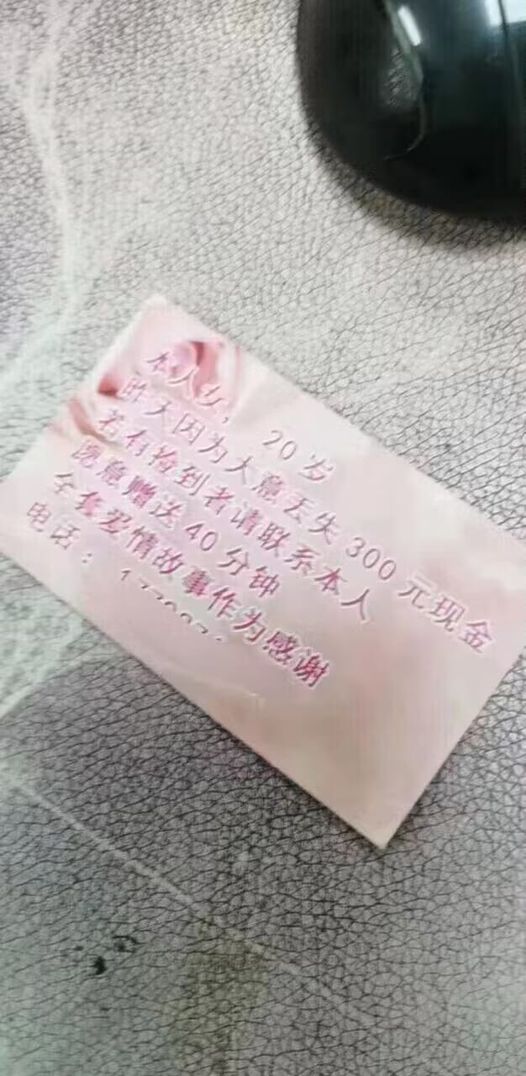 本人女， 20岁
昨天因为大意丢失300元现金
若有捡到者请联系本人
愿意赠送40分钟
全套爱情故事作为感谢
电话：